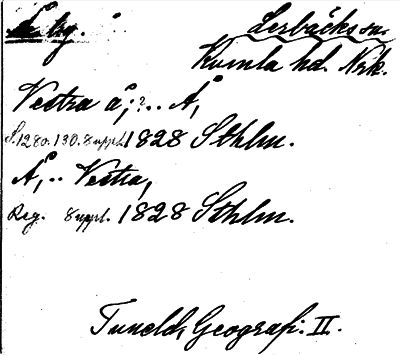 Å trg. Lerbäcks sn.
Kumla hd. Nrk.
Vestra å; ?.. Å,
S. 1280. 130. Suppl. 1828 Sthlm.
Å, .. Vestra,
Reg. Suppl. 1828 Sthlm.
Tuneld, Geografi. II.